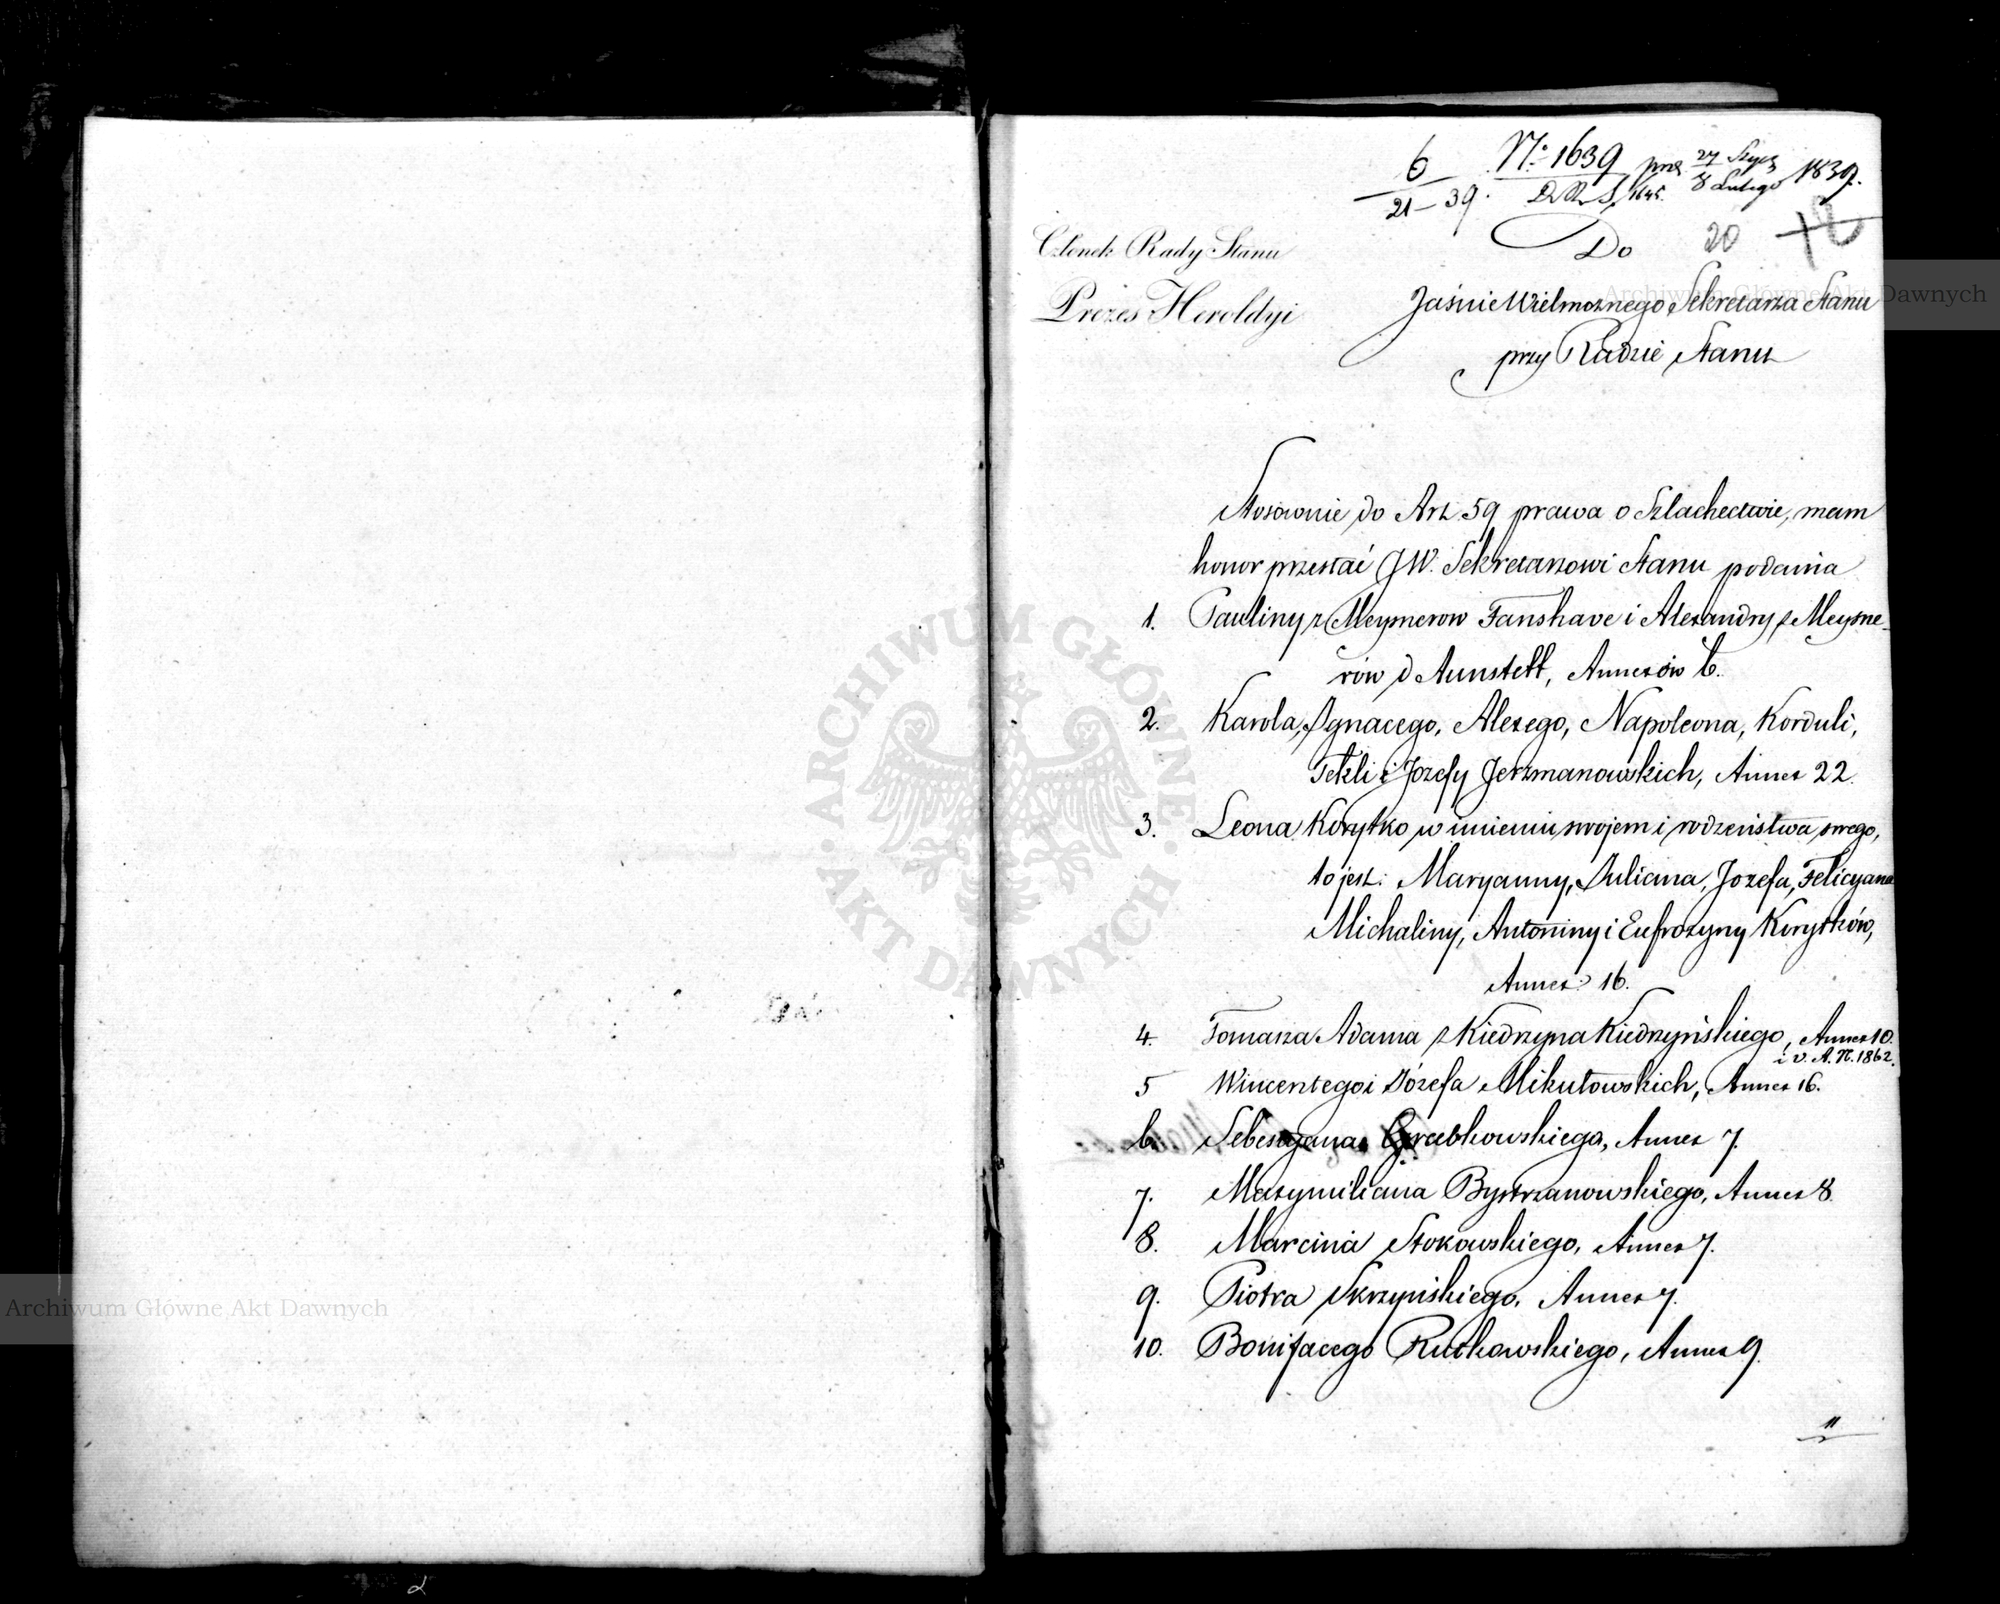 6
21 – 39.
Nº 1639
D.R.S. 1645.
prez 27 Stycz
8 Lutego 1839.
Członek Rady Stanu
Prezes Heroldyi
Do
20
Jaśnie Wielmożnego Sekretarza Stanu
przy Radzie Stanu
Stosownie do Art. 59 prawa o Szlachectwie, mam
honor przesłać JW. Sekretarzowi Stanu podania
1. Pauliny z Meysnerow Fanshave i Alexandry z Meysne-
rów d'Aunstett, Annexów 6.
2. Karola, Ignacego, Alexego, Napoleona, Korduli,
Tekli i Jozefy Jerzmanowskich, Annex 22.
3. Leona Korytko w imieniu swojem i rodzeństwa swego,
to jest: Maryanny, Juliana, Jozefa, Felicyana
Michaliny, Antoniny i Eufrozyny Korytków,
Annex: 16.
4. Tomasza Adama z Kiedrzyna Kiedrzyńskiego, Annex 10.
i v. A. N. 1862.
5 Wincentego i Józefa Mikułowskich, Annex 16.
6. Sebestyana Grabkowskiego, Annex 7.
7. Maxymiliana Bystrzanowskiego, Annex 8.
8. Marcina Stokowskiego, Annex 7.
9. Piotra Skrzyńskiego, Annex 7.
10. Bonifacego Rutkowskiego, Annex 9.
11
2
ARCHIWUM GŁÓWNE
AKT DAWNYCH
Archiwum Główne Akt Dawnych
Archiwum Główne Akt Dawnych